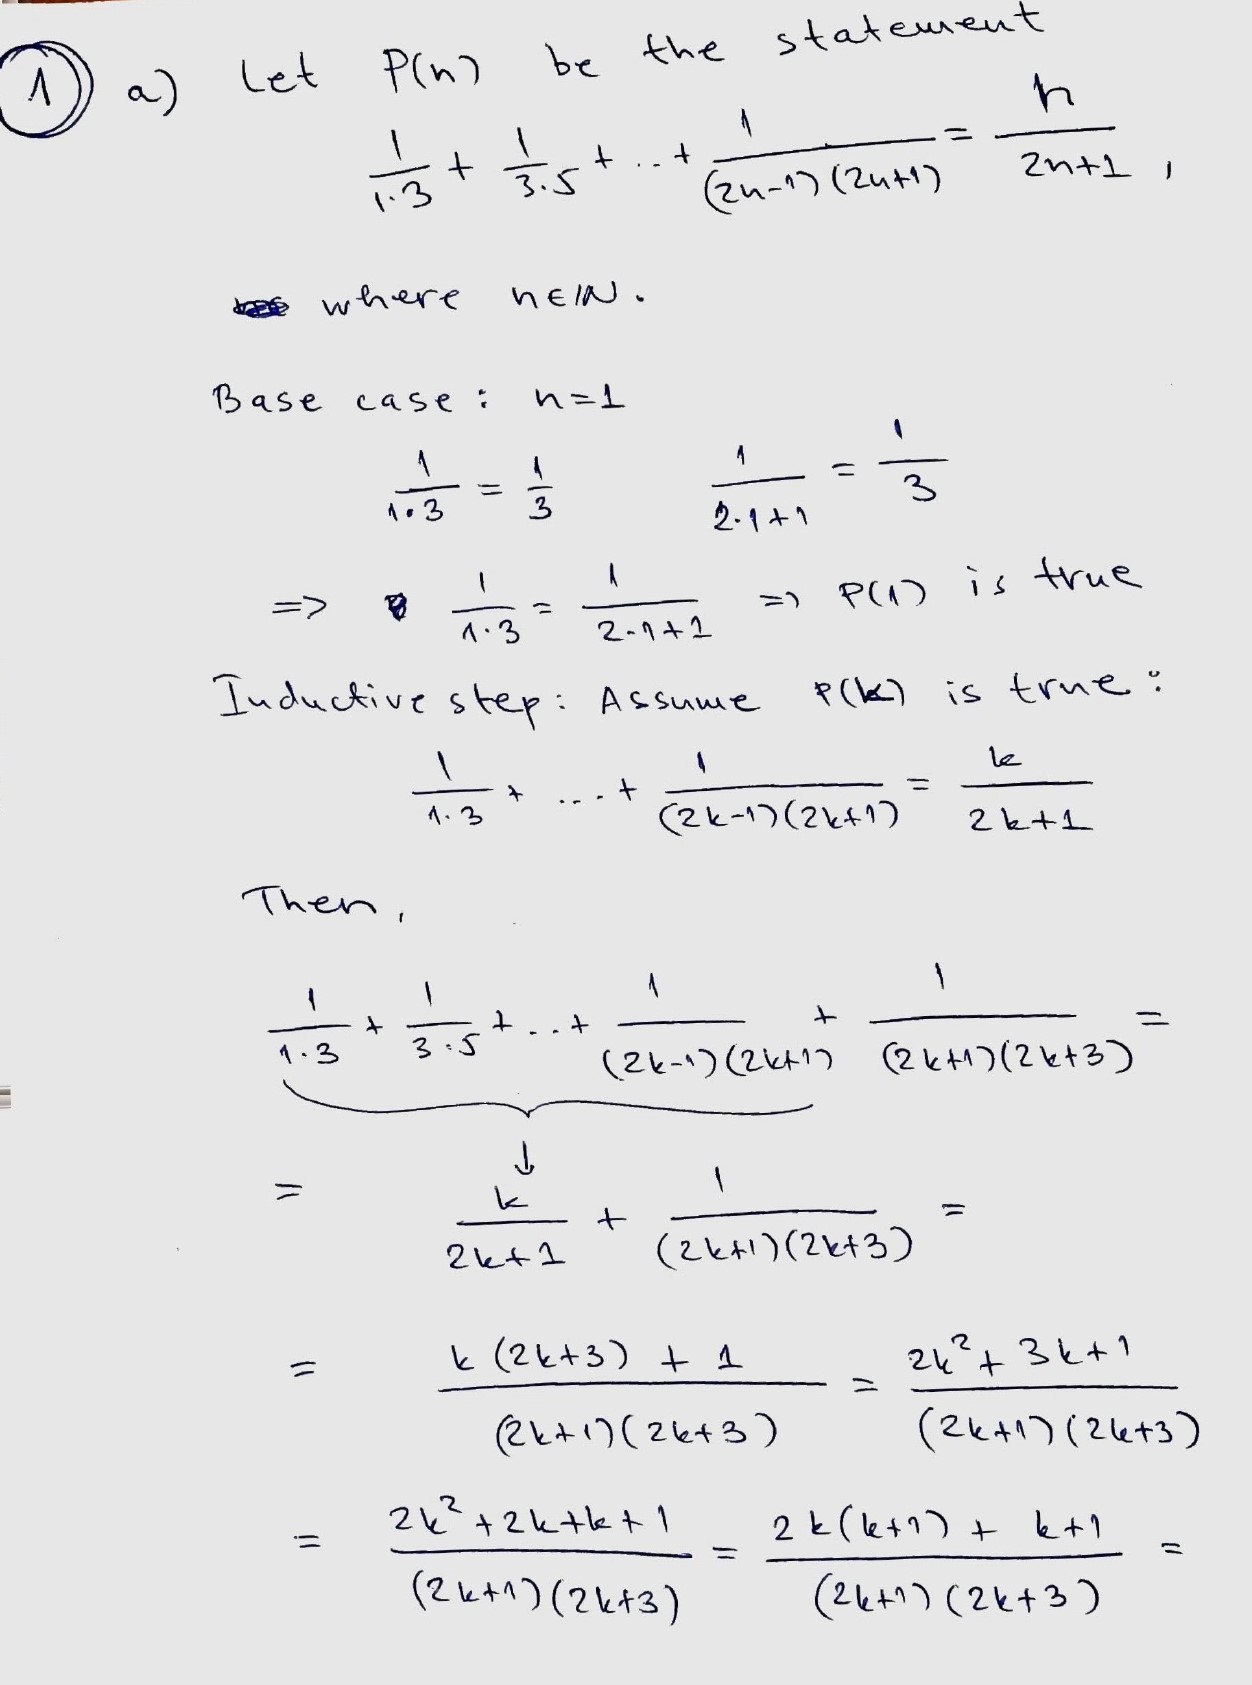 1 a) Let P(n) be the statement
1/(1·3) + 1/(3·5) + ... + 1/((2n-1)(2n+1)) = n/(2n+1) ,
where n∈ℕ.
Base case: n=1
1/(1·3) = 1/3    1/(2·1+1) = 1/3
=> 1/(1·3) = 1/(2·1+1) => P(1) is true
Inductive step: Assume P(k) is true:
1/(1·3) + ... + 1/((2k-1)(2k+1)) = k/(2k+1)
Then,
1/(1·3) + 1/(3·5) + ... + 1/((2k-1)(2k+1)) + 1/((2k+1)(2k+3)) =
↓
= k/(2k+1) + 1/((2k+1)(2k+3)) =
= (k(2k+3) + 1)/((2k+1)(2k+3)) = (2k²+3k+1)/((2k+1)(2k+3))
= (2k²+2k+k+1)/((2k+1)(2k+3)) = (2k(k+1) + k+1)/((2k+1)(2k+3)) =